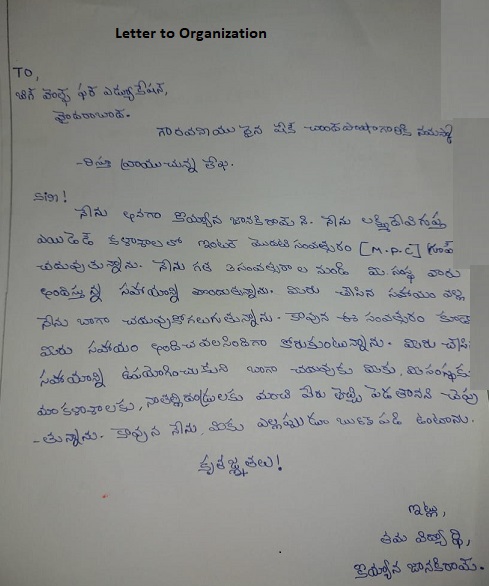 Letter to Organization
TO,
బిగ్ హెల్ప్ ఫర్ ఎడ్యుకేషన్,
హైదరాబాద్.
గౌరవనీయులైన షేక్ చాంద్ పాషాగారికి నమస్క
-రిస్తూ వ్రాయుచున్న లేఖ.
సర్!
నేను అనగా కొయ్యాన జానకిరామ్ ని. నేను లక్ష్మీదేవిగుప్త
ఎయిడెడ్ కళాశాలలో ఇంటర్ మొదటి సంవత్సరం [M.P.C] గ్రూప్
చదువుతున్నాను. నేను గత 3 సంవత్సరాల నుండి మీ సంస్థ వారు
అందిస్తున్న సహాయాన్ని పొందుతున్నాను. మీరు చేసిన సహాయం వల్ల
నేను బాగా చదువుకోగలుగుతున్నాను. కావున ఈ సంవత్సరం కూడా
మీరు సహాయం అందించవలసిందిగా కోరుకుంటున్నాను. మీరు చేసి
సహాయాన్ని ఉపయోగించుకుని బాగా చదువుకు మీకు, మీ సంస్థకు
మా కళాశాలకు, నా తల్లిదండ్రులకు మంచి పేరు తెచ్చి పెడతానని చెప్పు
-తున్నాను. కావున నేను మీకు ఎల్లప్పుడూ ఋణపడి ఉంటాను.
కృతజ్ఞతలు!
ఇట్లు,
తమ విద్యార్థి,
కొయ్యాన జానకిరామ్.